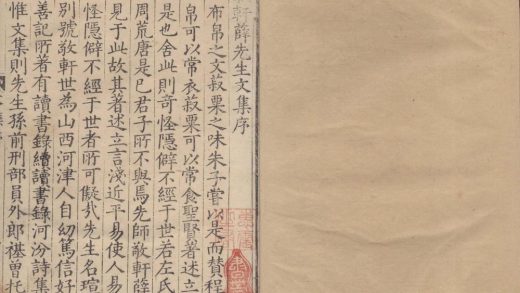 軒薛先生文集序
布帛之文菽粟之味朱子嘗以是而賛程
帛可以常衣菽粟可以常食聖賢著述立
是也舍此則奇怪隱僻不經于世若左氏
周荒唐是已君子所不與焉先師敬軒薛
見于此故其著述立言淺近平易使人易
怪隱僻不經于世者所可擬㢤先生名瑄
别號敬軒世為山西河津人自幼篤信好
善記所著有讀書錄續讀書錄河汾詩集
惟文集則先生孫前刑部員外郎禥曾托